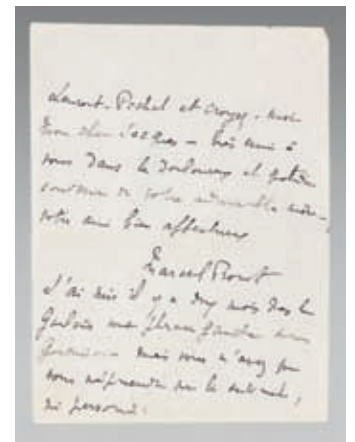 Laurent-Pichat et croyez-moi
mon cher Jacques – très uni à
vous dans le douloureux et
souvenir de votre admirable mère –
votre ami bien affectueux
Marcel Proust
J'ai mis il y a dix mois dans le
Gaulois une phrase
mais vous n'avez pu
vous méprendre sur le
ni personne.